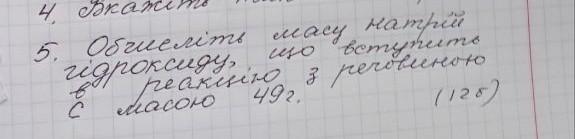 4. Вкажіть
5. Обчисліть масу натрій
гідроксиду, що вступить
в реакцію з речовиною
С масою 49г. (12б)